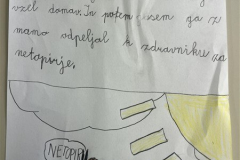 vzel domov. In potem sem ga z
mano odpeljal k zdravniku za
netopirje.
NETOPIR